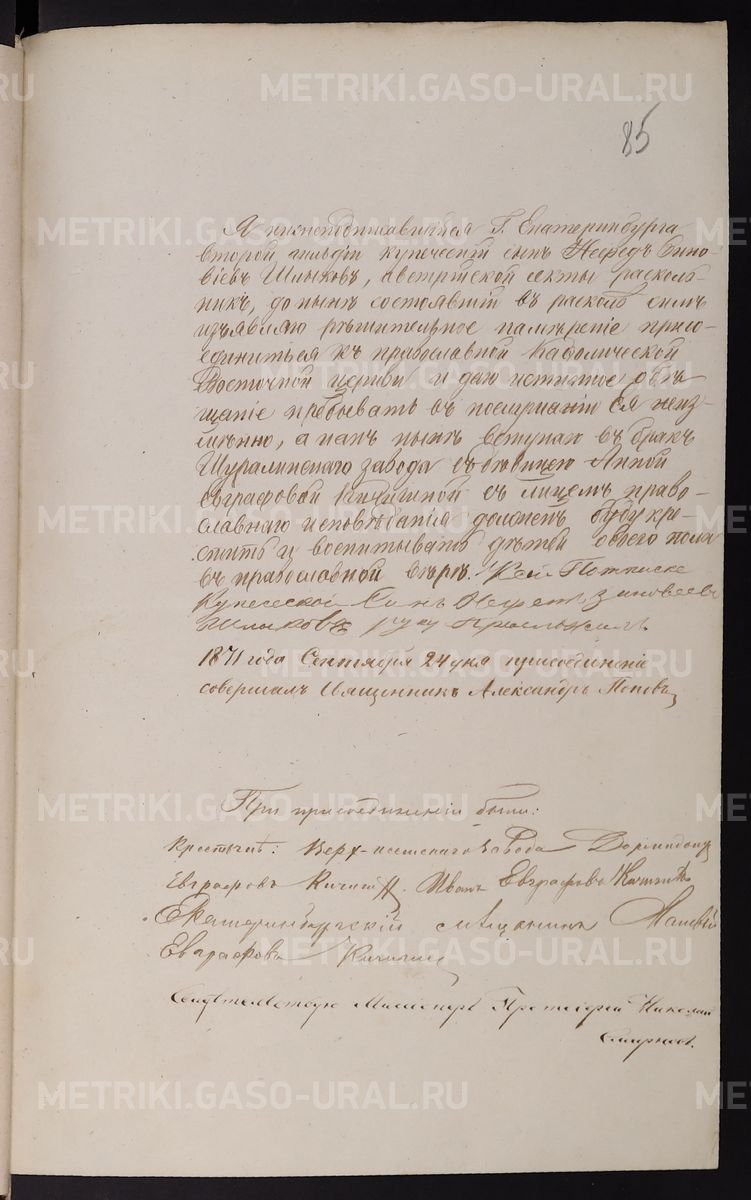 85
Я нижеподписавшійся Г. Екатеринбурга
второй гильдіи купеческій сынъ Нефедъ Зино-
віевъ Шлыковъ, австрійской секты расколь-
никъ, до нынѣ состоявшій въ расколѣ симъ
изъявляю рѣшительное намѣреніе присо-
единиться къ православной Каѳолической
Восточной церкви и даю истинное обѣ-
щаніе пребывать въ послушаніи Ея неиз-
мѣнно, а какъ нынѣ вступаю въ бракъ
Шуралинскаго завода съ дѣвицею Анной
Евграфовой Кичигиной съ лицемъ право-
славнаго исповѣданія долженъ буду кре-
стить и воспитывать дѣтей обоего пола
въ православной вѣрѣ. Ксей Потписке
Купеческой Сынъ Нефетъ Зиновеевъ
Шлыковъ руку приложилъ
1871 года Сентября 24 дня присоединеніе
совершалъ Священникъ Александръ Поповъ
При присоединеніи были:
Крестьяне: Верх-исетскаго завода Дормидонтъ
Евграфовъ Кичигинъ. Иванъ Евграфовъ Кичигинъ
Екатеринбургскій мѣщанинъ
Евграфовъ Кичигинъ
Свидѣтельствую Миссіонеръ Протоіерей Николай
Смирновъ.
METRIKI.GASO-URAL.RU